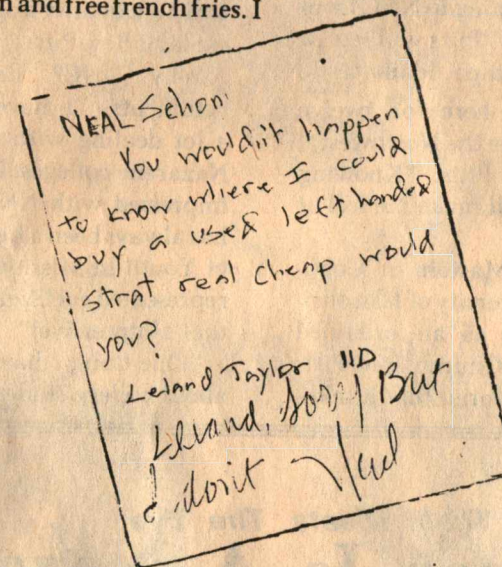 n and free french fries. I
NEAL Schon
You wouldn't happen
to know where I could
buy a used left handed
strat real cheap would
you?
Leland Taylor IID
Leland, Sorry But
I don't Neal